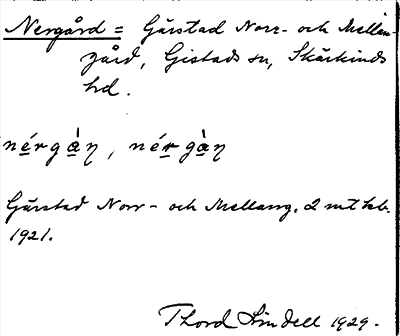 Nergård = Gärstad Norr- och Mellan-
gård, Gistads sn, Skärkinds
hd.
nérgàn, nérgàn
Gärstad Norr- och Mellang. 2 mt
1921.
Thord Lindell 1929.